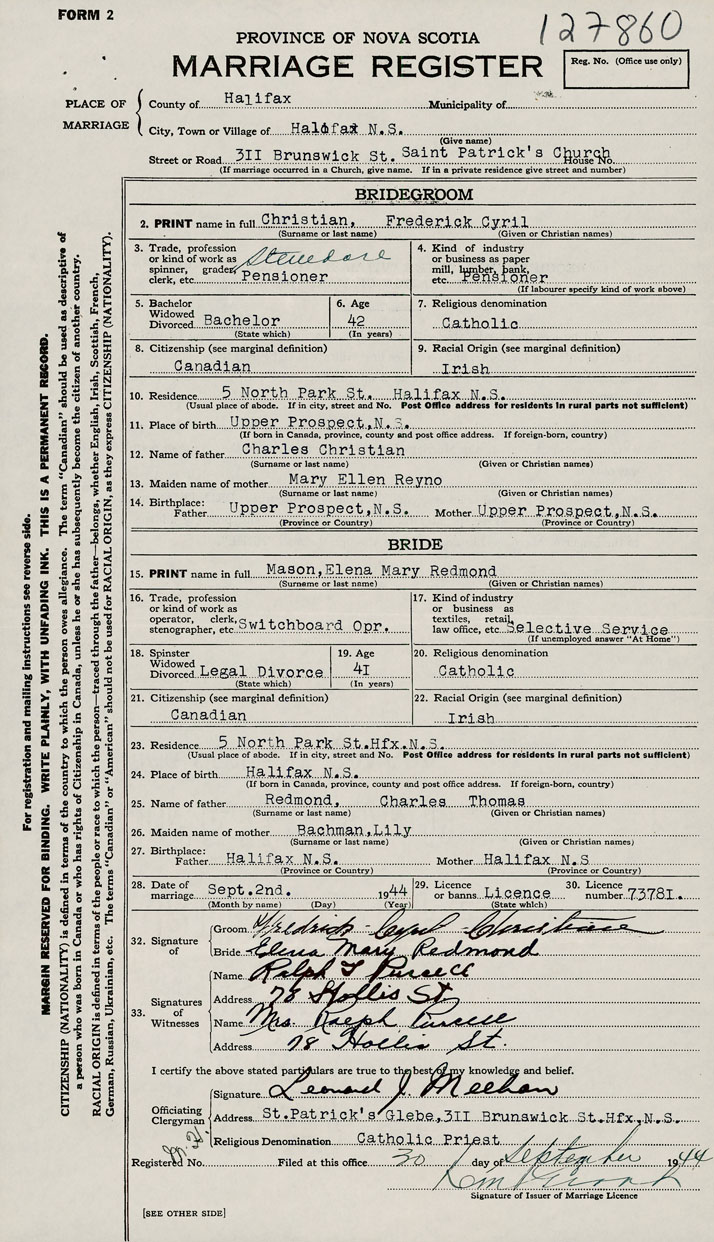 FORM 2
127860
PROVINCE OF NOVA SCOTIA
MARRIAGE REGISTER
Reg. No. (Office use only)
PLACE OF MARRIAGE
County of Halifax Municipality of
City, Town or Village of Halifax N.S.
(Give name)
Street or Road 3II Brunswick St. Saint Patrick's Church House No.
(If marriage occurred in a Church, give name. If in a private residence give street and number)
BRIDEGROOM
2. PRINT name in full Christian, Frederick Cyril
(Surname or last name) (Given or Christian names)
3. Trade, profession or kind of work as spinner, grader, clerk, etc. Stevedore Pensioner
4. Kind of industry or business as paper mill, lumber, bank, etc. Pensioner
(If labourer specify kind of work above)
5. Bachelor Widowed Divorced Bachelor
(State which)
6. Age 42
(In years)
7. Religious denomination
Catholic
8. Citizenship (see marginal definition)
Canadian
9. Racial Origin (see marginal definition)
Irish
10. Residence 5 North Park St. Halifax N.S.
(Usual place of abode. If in city, street and No. Post Office address for residents in rural parts not sufficient)
11. Place of birth Upper Prospect, N.S.
(If born in Canada, province, county and post office address. If foreign-born, country)
12. Name of father Charles Christian
(Surname or last name) (Given or Christian names)
13. Maiden name of mother Mary Ellen Reyno
(Surname or last name) (Given or Christian names)
14. Birthplace: Father Upper Prospect,N.S. Mother Upper Prospect,N.S.
(Province or Country) (Province or Country)
BRIDE
15. PRINT name in full Mason,Elena Mary Redmond
(Surname or last name) (Given or Christian names)
16. Trade, profession or kind of work as operator, clerk, stenographer, etc. Switchboard Opr.
17. Kind of industry or business as textiles, retail, law office, etc. Selective Service
(If unemployed answer "At Home")
18. Spinster Widowed Divorced Legal Divorce
(State which)
19. Age 4I
(In years)
20. Religious denomination
Catholic
21. Citizenship (see marginal definition)
Canadian
22. Racial Origin (see marginal definition)
Irish
23. Residence 5 North Park St.Hfx.N.S.
(Usual place of abode. If in city, street and No. Post Office address for residents in rural parts not sufficient)
24. Place of birth Halifax N.S.
(If born in Canada, province, county and post office address. If foreign-born, country)
25. Name of father Redmond, Charles Thomas
(Surname or last name) (Given or Christian names)
26. Maiden name of mother Bachman,Lily
(Surname or last name) (Given or Christian names)
27. Birthplace: Father Halifax N.S. Mother Halifax N.S
(Province or Country) (Province or Country)
28. Date of marriage Sept.2nd. 1944
(Month by name) (Day) (Year)
29. Licence or banns Licence
(State which)
30. Licence number 7378I.
32. Signature of
Groom Fredrick Cyril Christian
Bride Elena Mary Redmond
33. Signatures of Witnesses
Name Ralph T Purcell
Address 78 Hollis St
Name Mrs. Ralph Purcell
Address 78 Hollis St.
I certify the above stated particulars are true to the best of my knowledge and belief.
Officiating Clergyman
Signature Leonard J. Meehan
Address St.Patrick's Glebe,3II Brunswick St.Hfx,N.S.
Religious Denomination Catholic Priest
Registered No. Filed at this office 30 day of September 1944
Signature of Issuer of Marriage Licence
[SEE OTHER SIDE]
For registration and mailing instructions see reverse side.
MARGIN RESERVED FOR BINDING. WRITE PLAINLY, WITH UNFADING INK. THIS IS A PERMANENT RECORD.
CITIZENSHIP (NATIONALITY) is defined in terms of the country to which the person owes allegiance. The term "Canadian" should be used as descriptive of
a person who was born in Canada or who has rights of Citizenship in Canada, unless he or she has subsequently become the citizen of another country.
RACIAL ORIGIN is defined in terms of the people or race to which the person—traced through the father—belongs, whether English, Irish, Scottish, French,
German, Russian, Ukrainian, etc. The terms "Canadian" or "American" should not be used for RACIAL ORIGIN, as they express CITIZENSHIP (NATIONALITY).